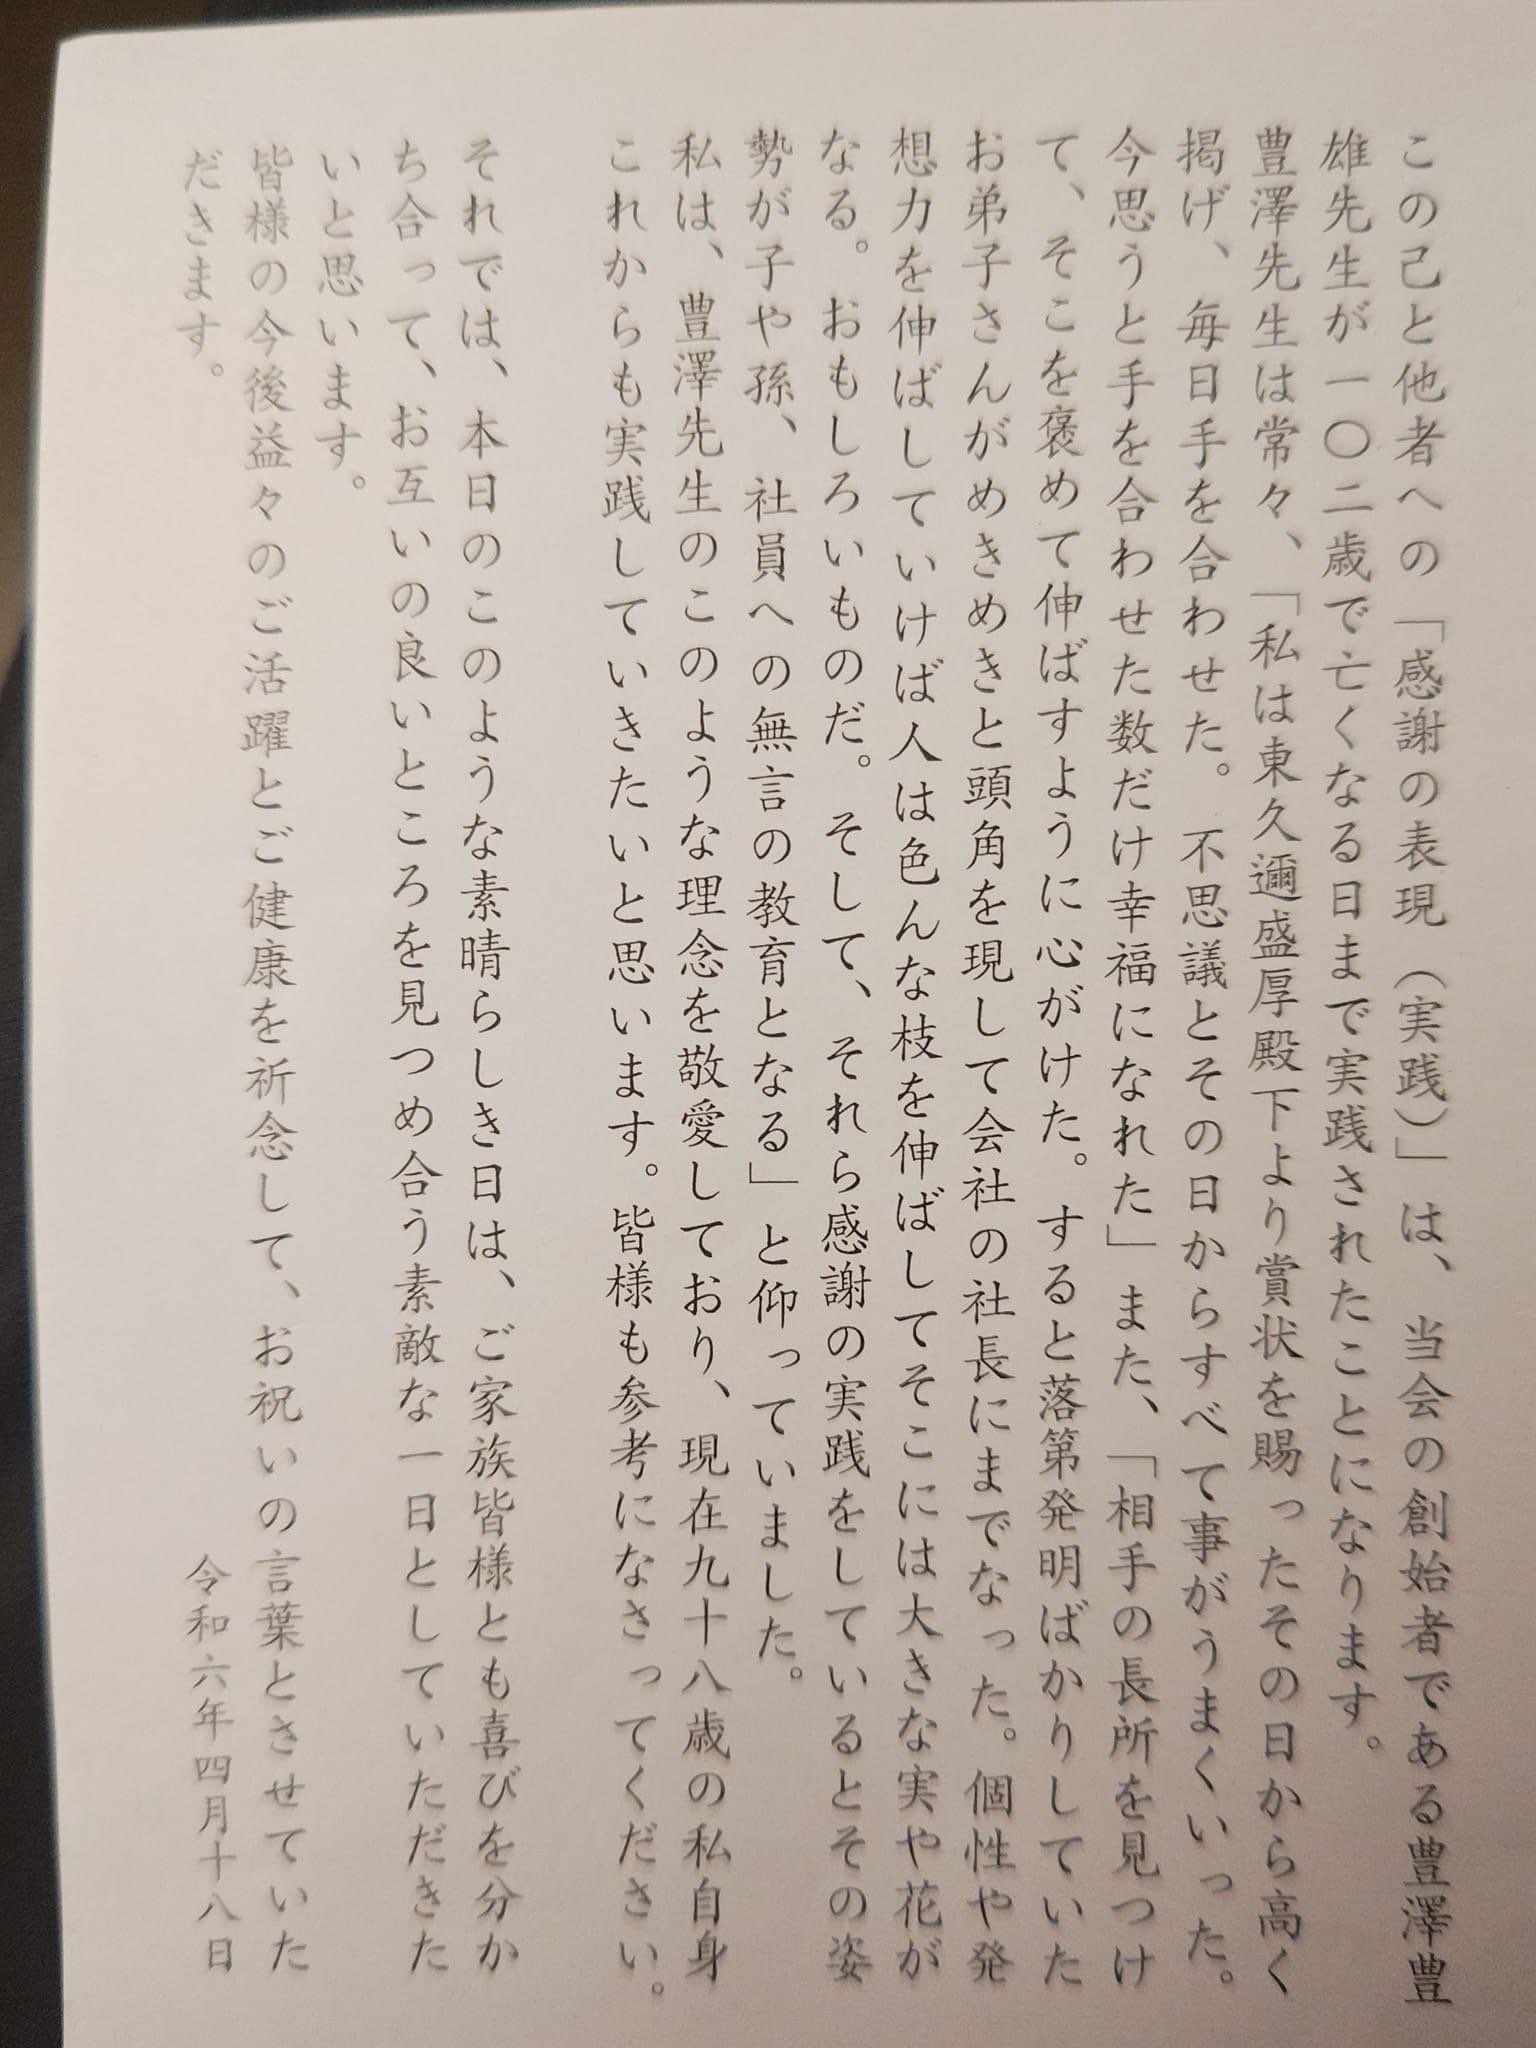 この己と他者への「感謝の表現（実践）」は、当会の創始者である豊澤豊
雄先生が一〇二歳で亡くなる日まで実践されたことになります。
豊澤先生は常々、「私は東久邇盛厚殿下より賞状を賜ったその日から高く
掲げ、毎日手を合わせた。不思議とその日からすべて事がうまくいった。
今思うと手を合わせた数だけ幸福になれた」また、「相手の長所を見つけ
て、そこを褒めて伸ばすように心がけた。すると落第発明ばかりしていた
お弟子さんがめきめきと頭角を現して会社の社長にまでなった。個性や発
想力を伸ばしていけば人は色んな枝を伸ばしてそこには大きな実や花が
なる。おもしろいものだ。そして、それら感謝の実践をしているとその姿
勢が子や孫、社員への無言の教育となる」と仰っていました。
私は、豊澤先生のこのような理念を敬愛しており、現在九十八歳の私自身
これからも実践していきたいと思います。皆様も参考になさってください。
それでは、本日のこのような素晴らしき日は、ご家族皆様とも喜びを分か
ち合って、お互いの良いところを見つめ合う素敵な一日としていただきた
いと思います。
皆様の今後益々のご活躍とご健康を祈念して、お祝いの言葉とさせていた
だきます。
令和六年四月十八日